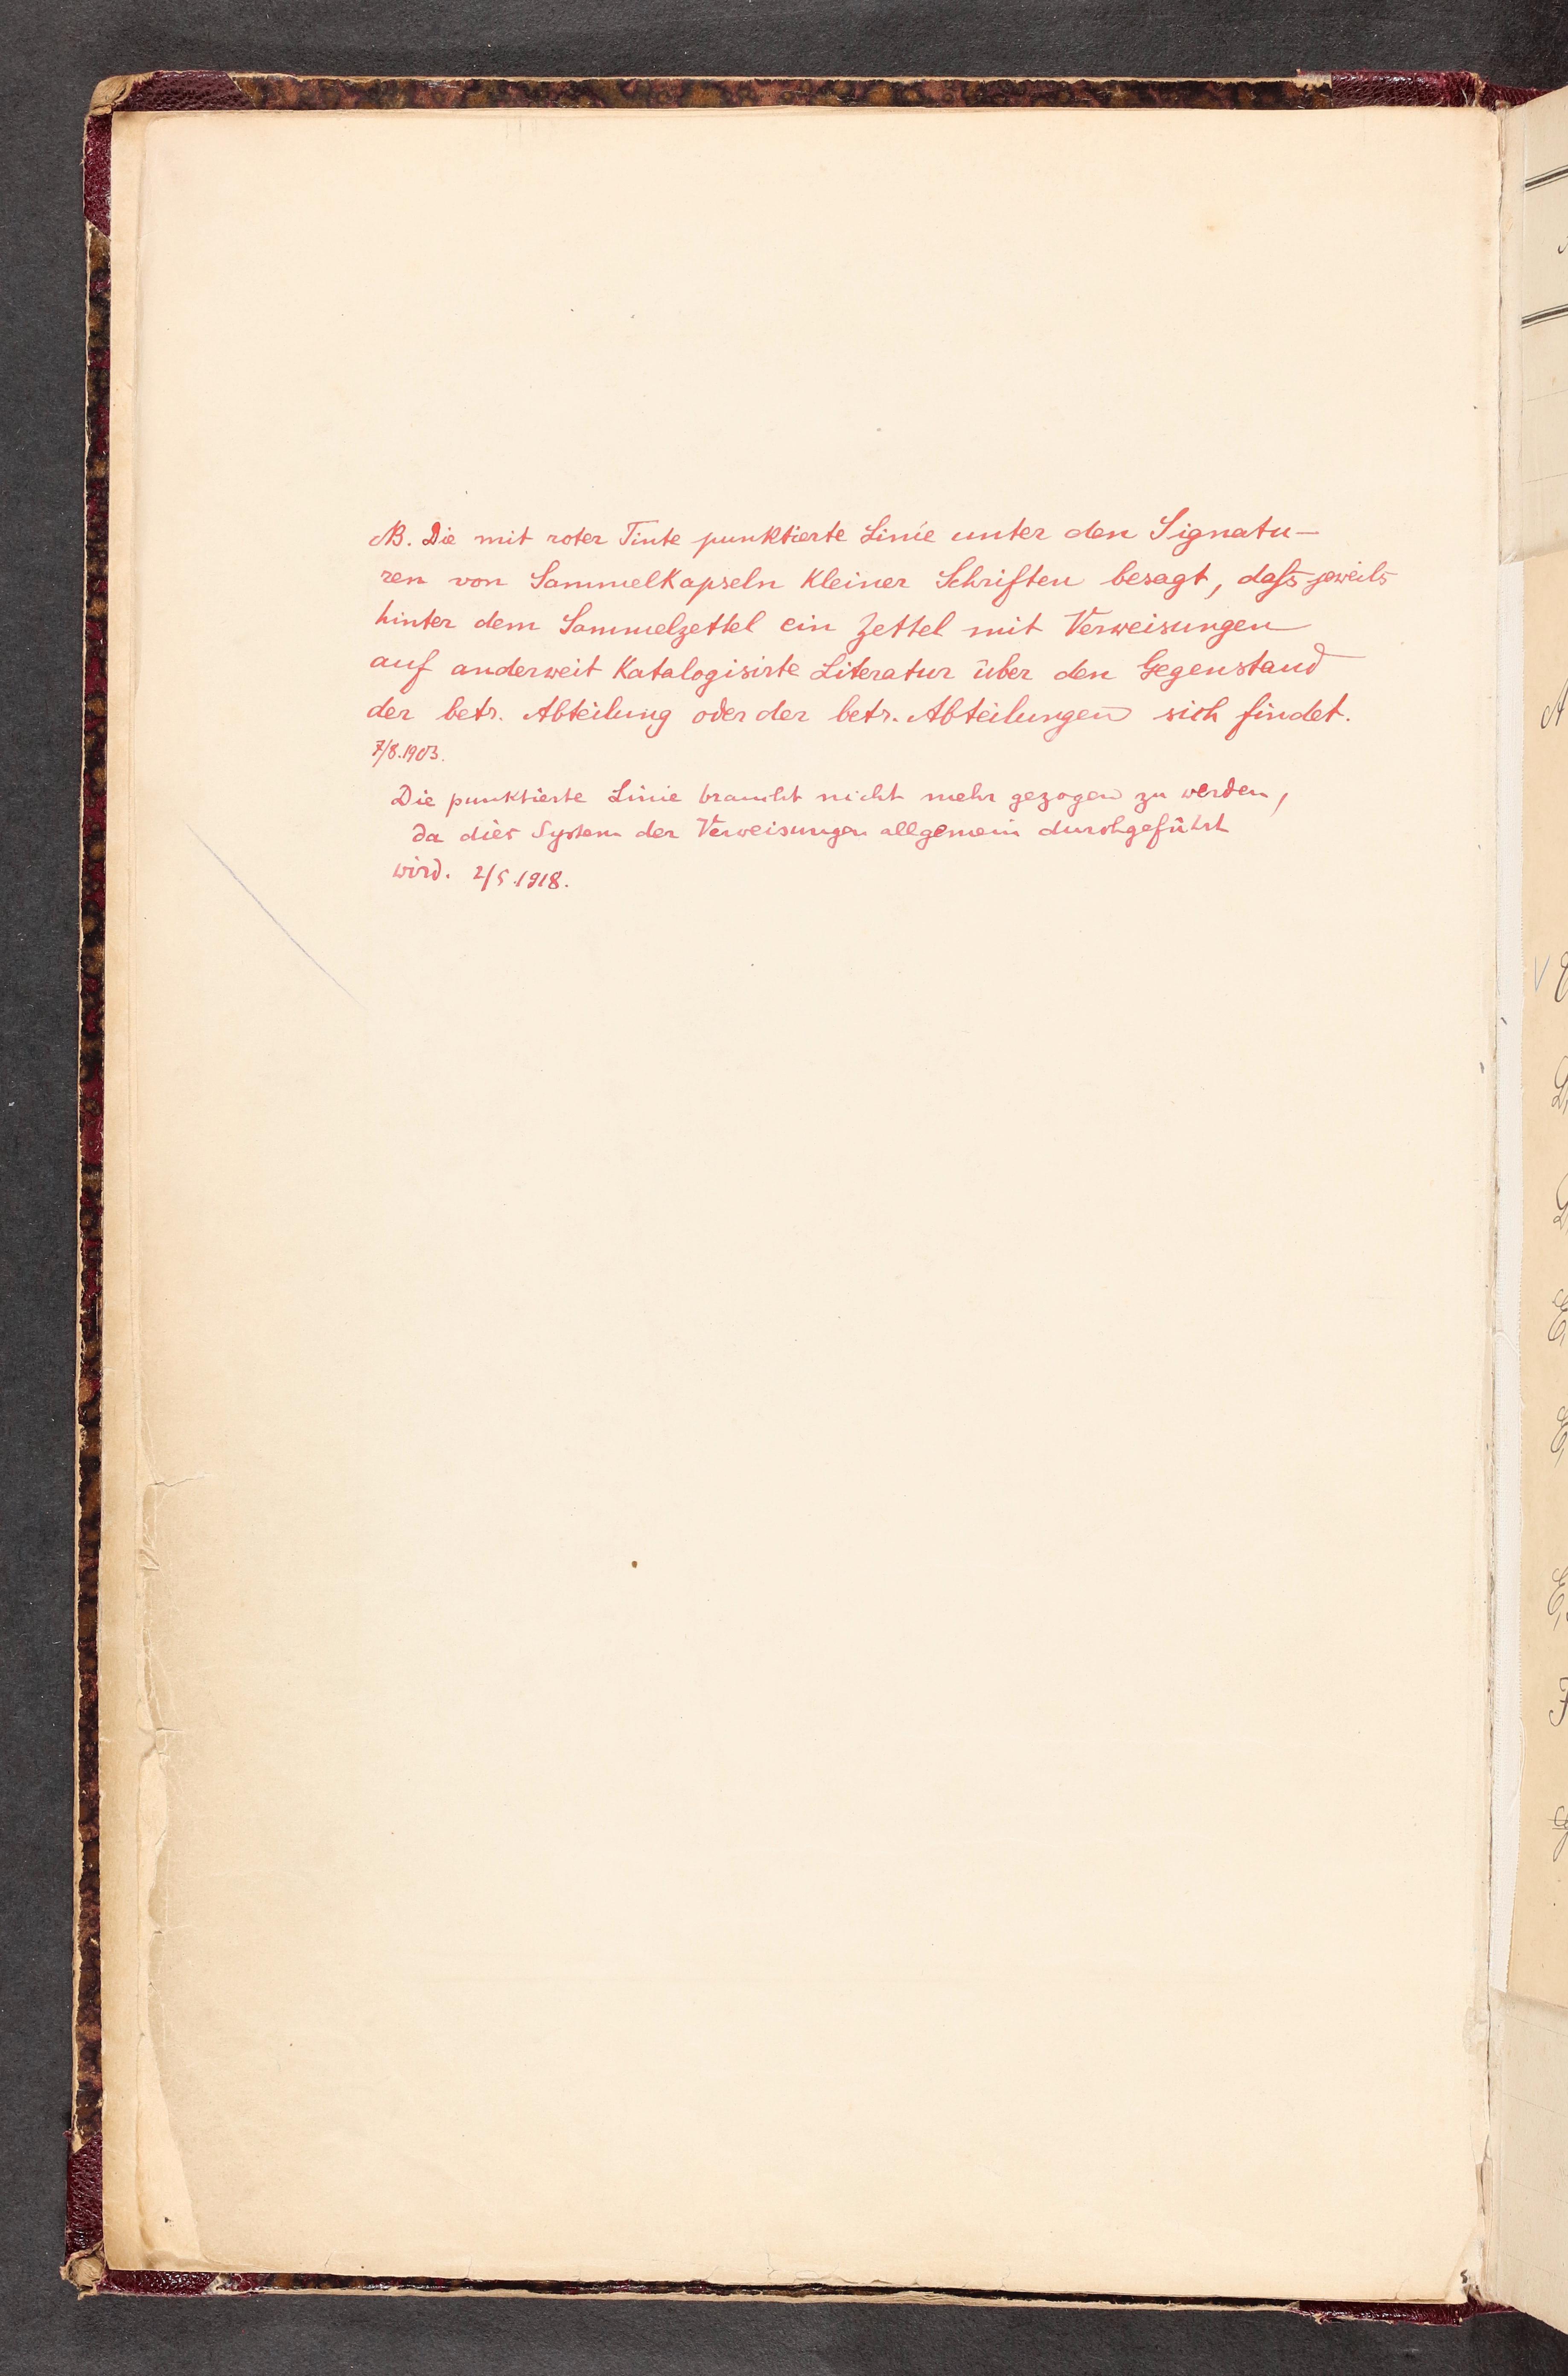 NB. Die mit roter Tinte punktierte Linie unter den Signatu-
ren von Sammelkapseln kleiner Schriften besagt, daſs jeweils
hinter dem Sammelzettel ein Zettel mit Verweisungen
auf anderweit katalogisirte Literatur über den Gegenstand
der betr. Abteilung oder der betr. Abteilungen sich findet.
7/8.1903.
Die punktierte Linie braucht nicht mehr gezogen zu werden,
da dies System der Verweisungen allgemein durchgeführt
wird. 2/5.1918.